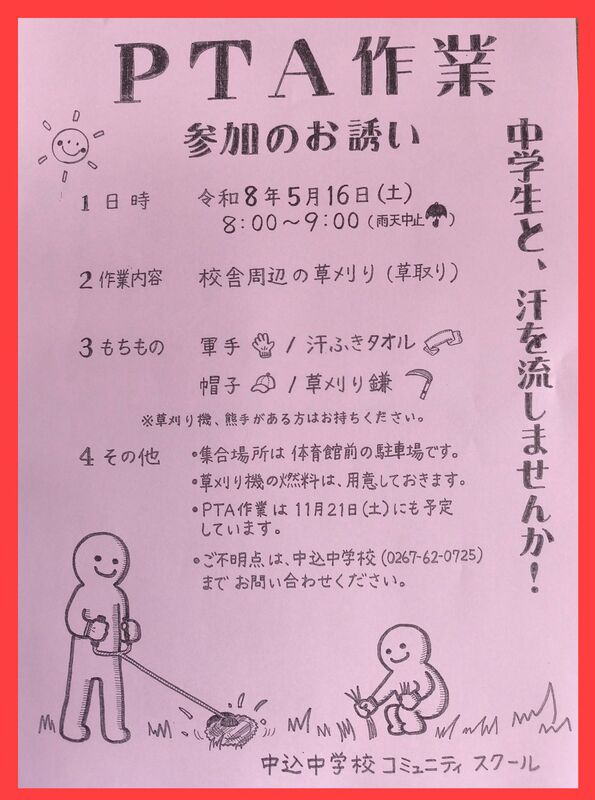 PTA作業
参加のお誘い
中学生と、汗を流しませんか！
1 日時 令和8年5月16日(土)
8:00～9:00 (雨天中止)
2 作業内容 校舎周辺の草刈り (草取り)
3 もちもの 軍手 / 汗ふきタオル
帽子 / 草刈り鎌
※草刈り機、熊手がある方はお持ちください。
4 その他 •集合場所は体育館前の駐車場です。
•草刈り機の燃料は、用意しておきます。
•PTA作業は11月21日(土)にも予定
しています。
•ご不明点は、中込中学校 (0267-62-0725)
までお問い合わせください。
中込中学校コミュニティスクール